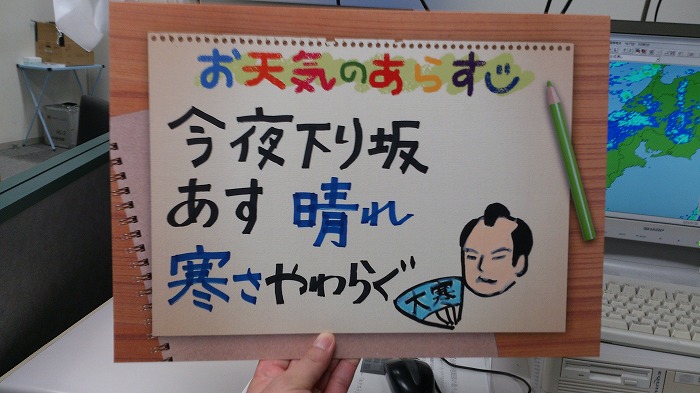 お天気のあらすじ
今夜下り坂
あす 晴れ
寒さやわらぐ
大寒
SHARP